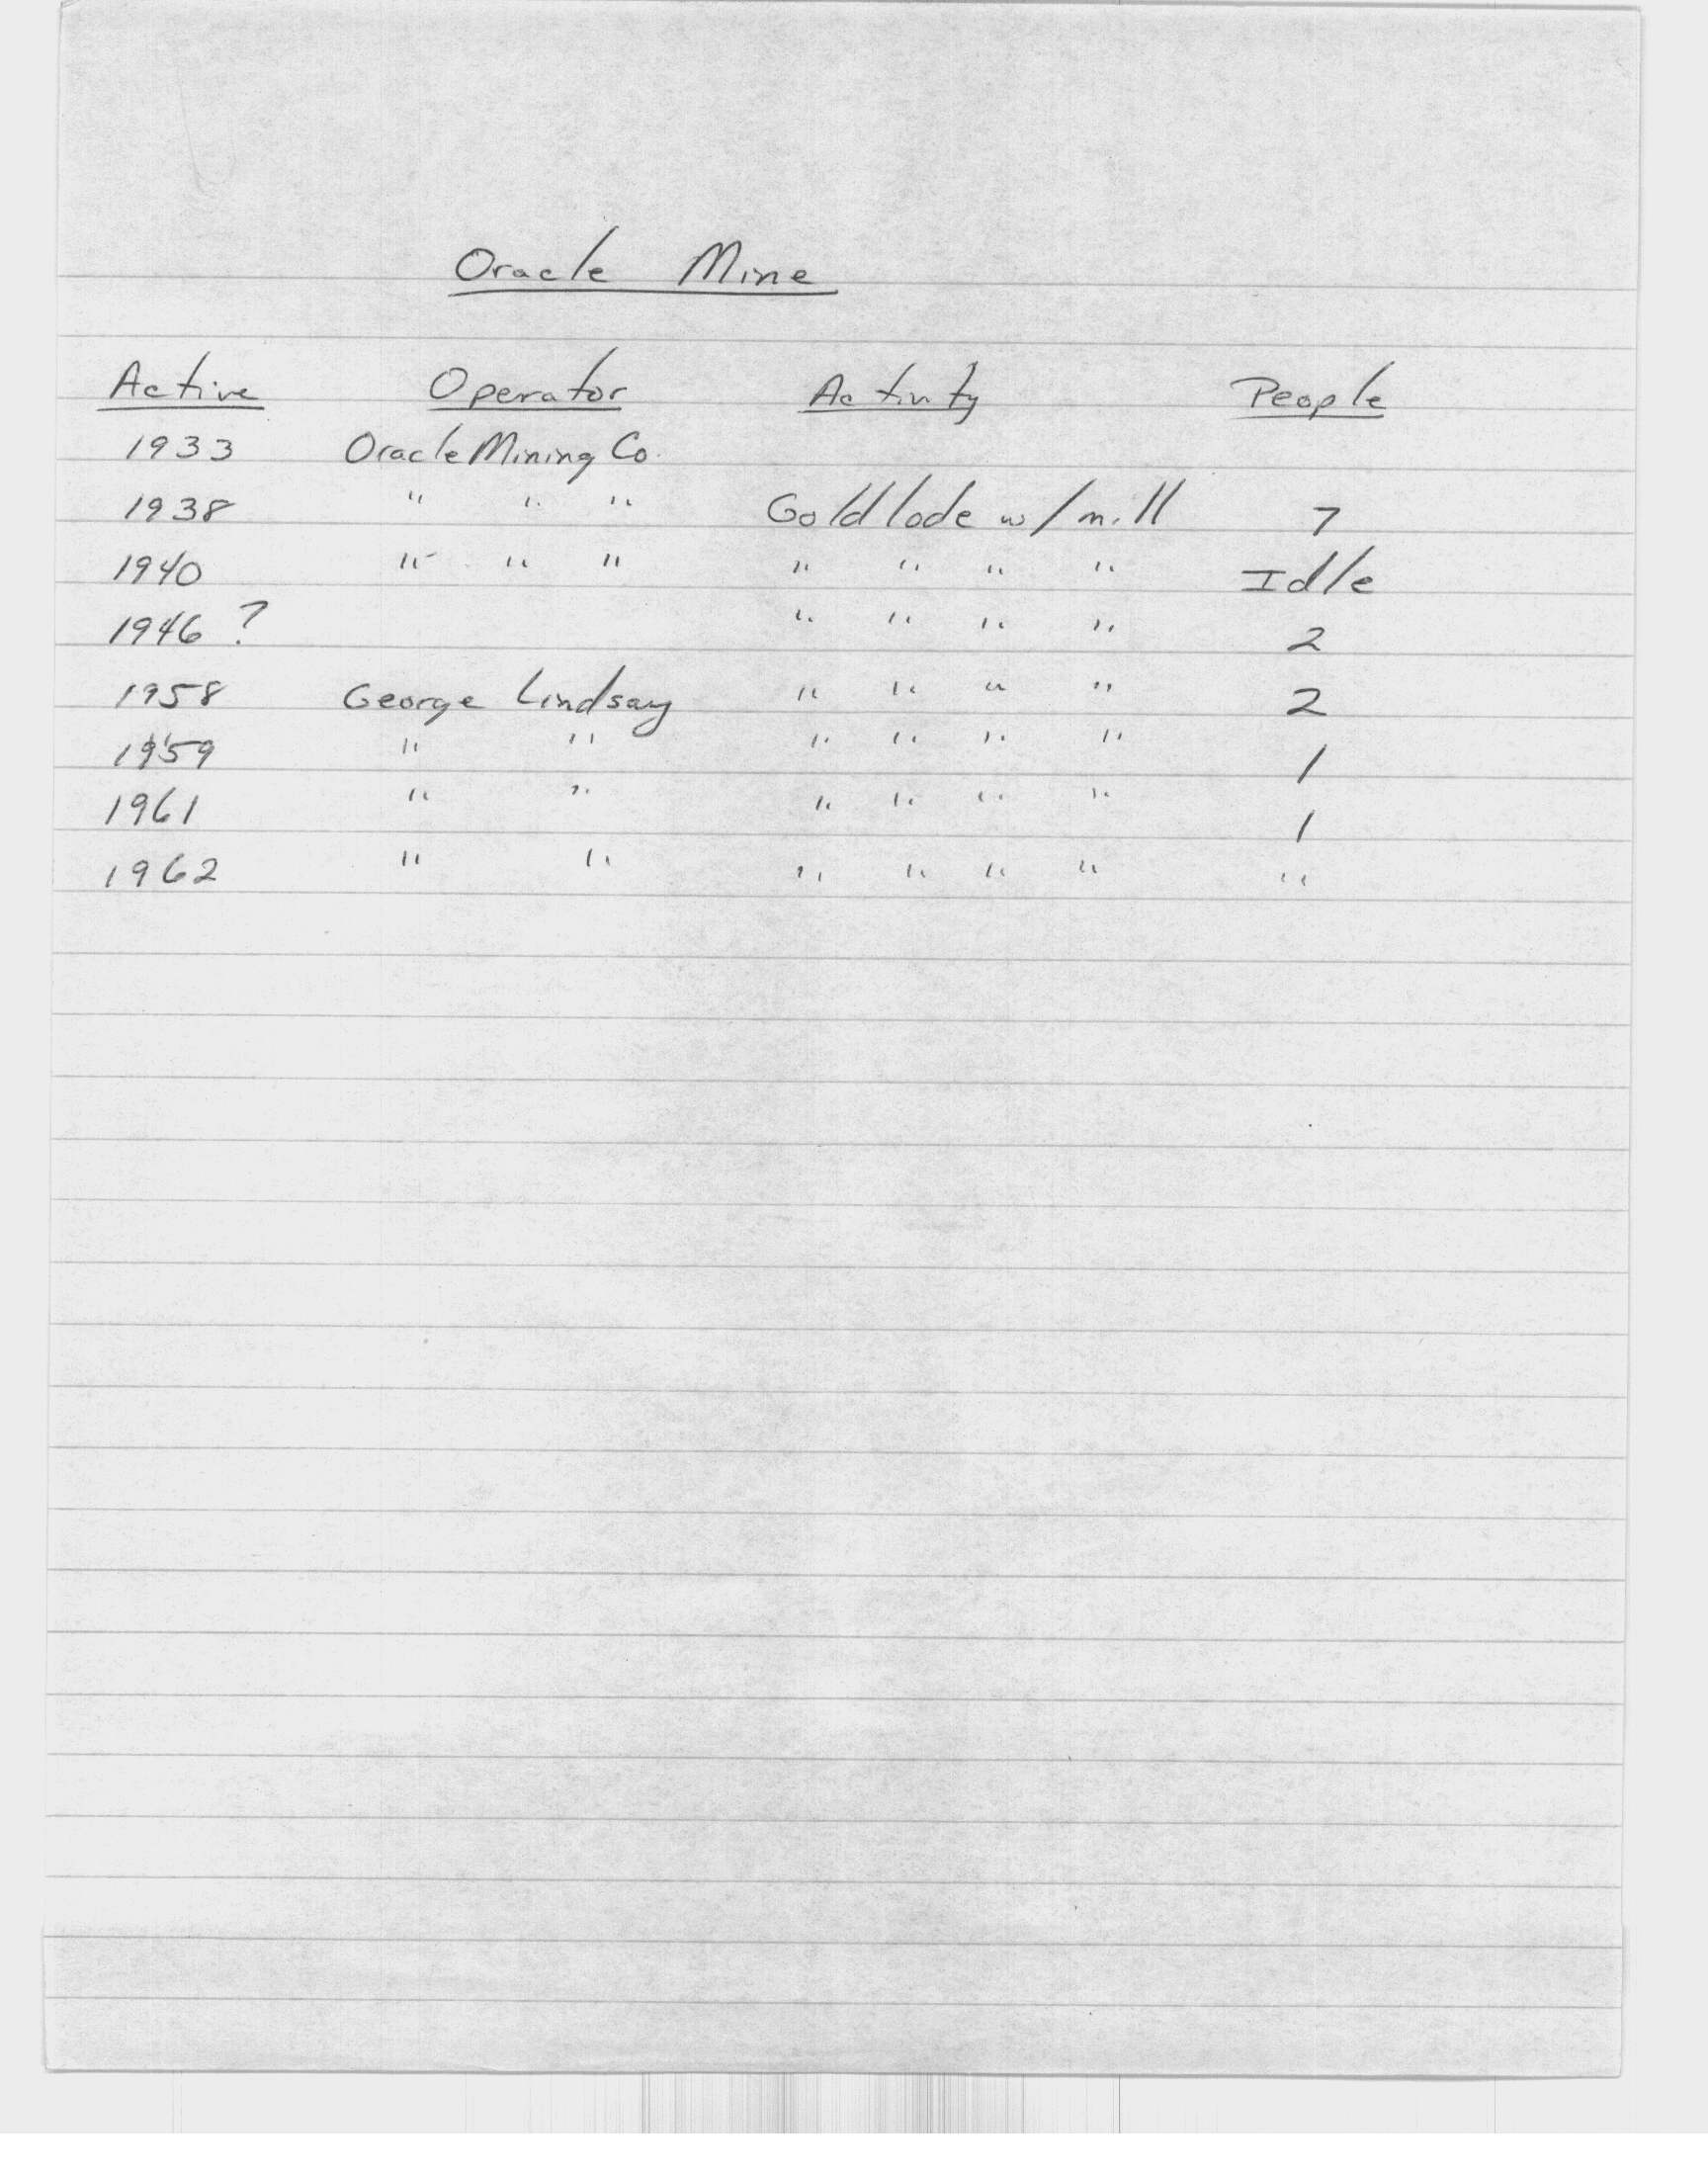 Oracle Mine
Active Operator Activity People
1933 Oracle Mining Co.
1938 " " " Gold lode w/mill 7
1940 " " " " " " " Idle
1946 ? " " " " 2
1958 George Lindsay " " " " 2
1959 " " " " " " 1
1961 " " " " " " 1
1962 " " " " " " "